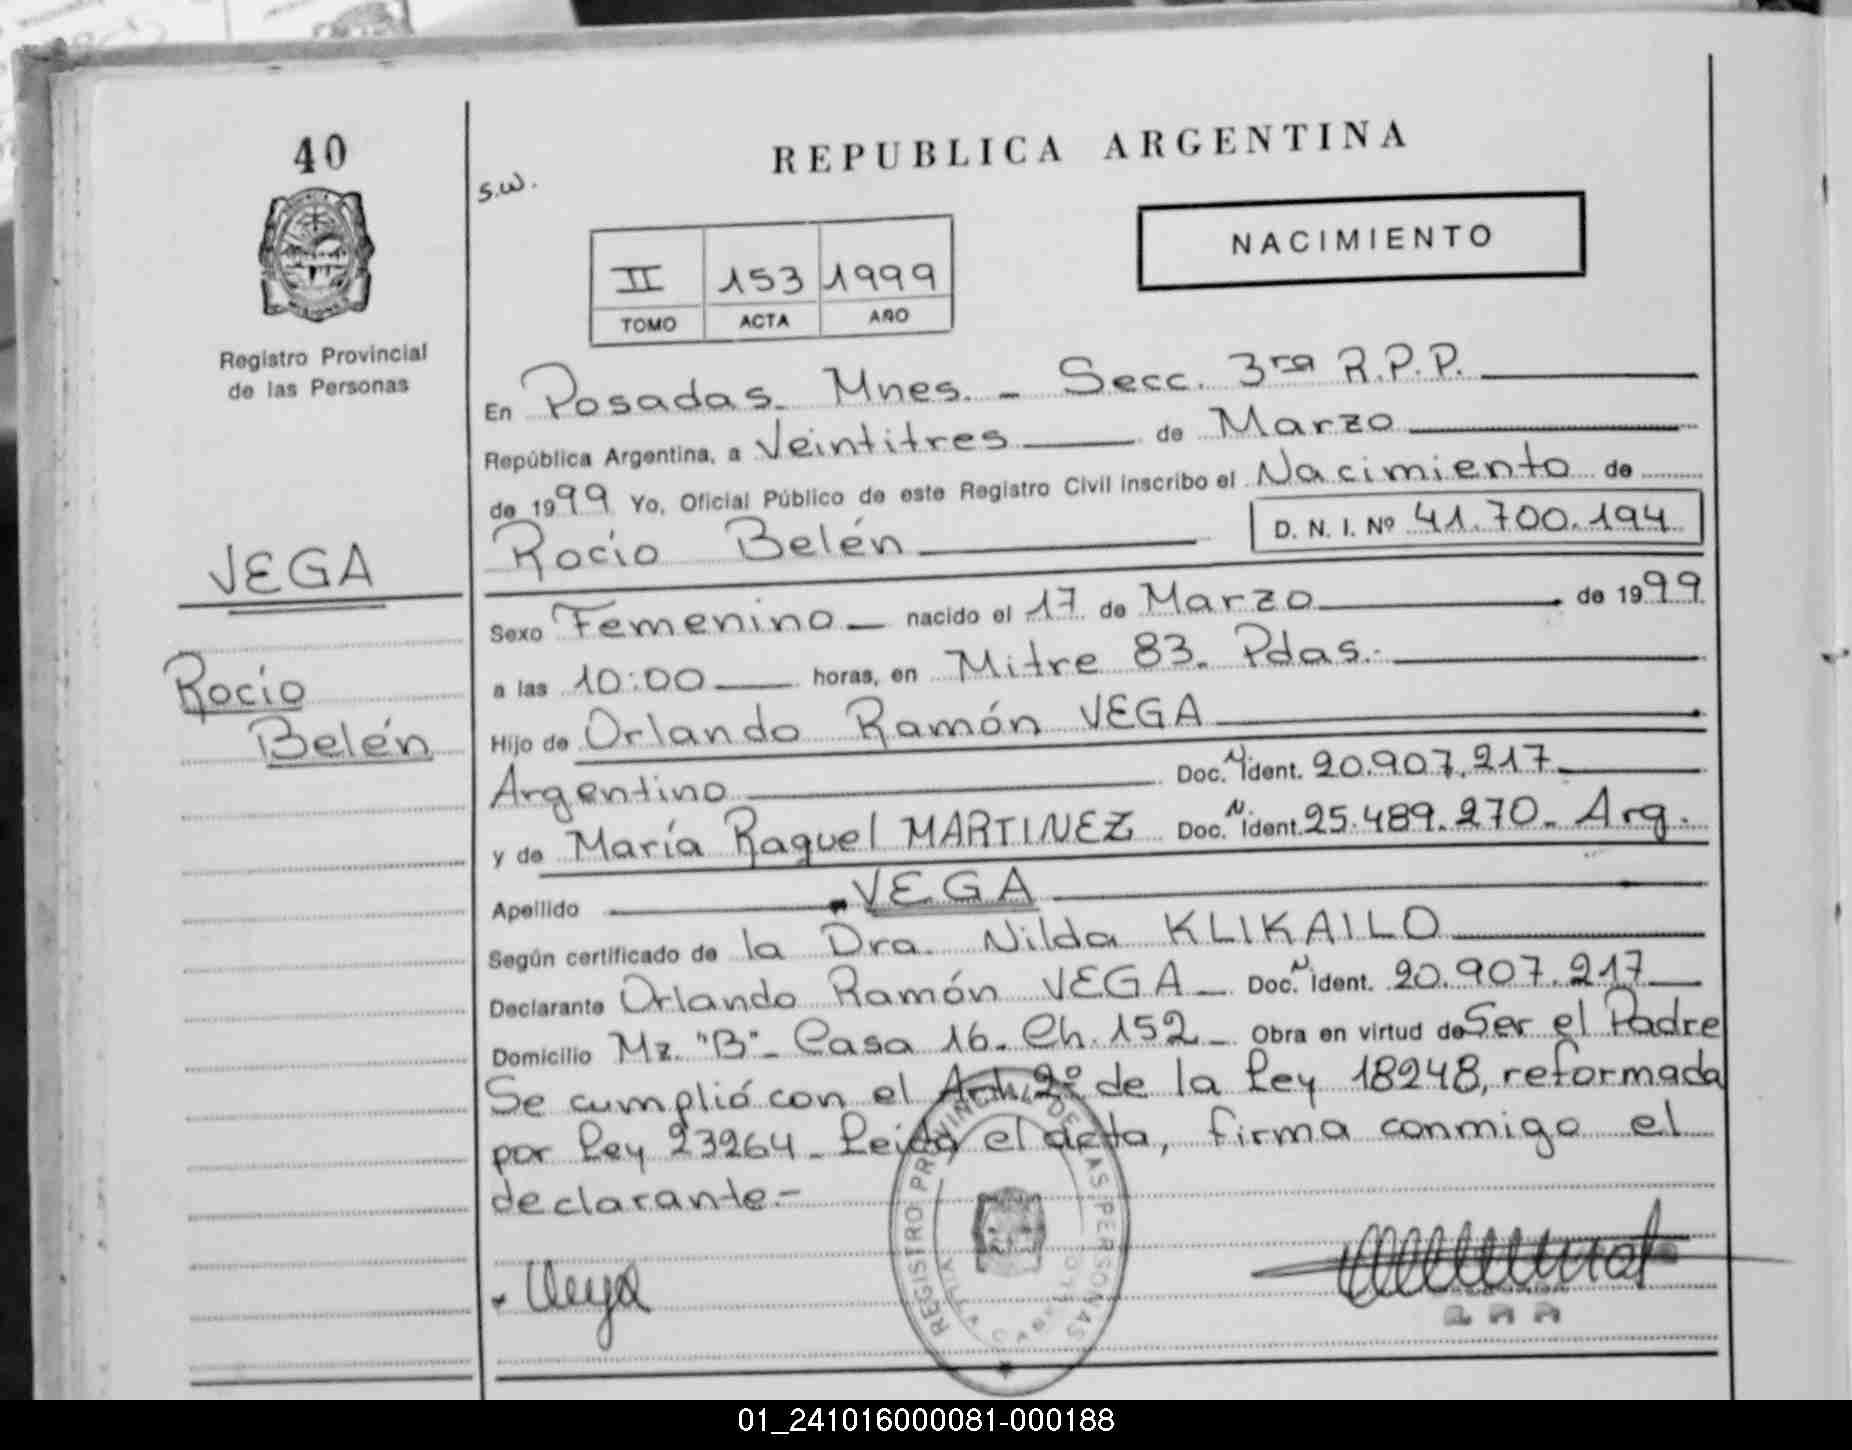 40
REPUBLICA ARGENTINA
S.W.
NACIMIENTO
II 153 1999
TOMO ACTA AÑO
Registro Provincial
de las Personas
En Posadas. Mnes. - Secc. 3ra R.P.P.
República Argentina, a Veintitres de Marzo
de 1999 Yo, Oficial Público de este Registro Civil inscribo el Nacimiento de
Rocío Belén D. N. I. Nº 41.700.194
VEGA
Sexo Femenino nacido el 17 de Marzo de 1999
Rocío
a las 10:00 horas, en Mitre 83. Pdas.-
Belén
Hijo de Orlando Ramón VEGA
Argentino Doc. N Ident. 20.907.217
y de María Raquel MARTINEZ Doc. N Ident. 25.489.270- Arg.
Apellido VEGA
Según certificado de la Dra. Nilda KLIKAILO
Declarante Orlando Ramón VEGA Doc. N Ident. 20.907.217
Domicilio Mz. "B"- Casa 16- Ch. 152- Obra en virtud de Ser el Padre
Se cumplió con el Art. 2º de la Ley 18248, reformada
por Ley 23264- Leida el acta, firma conmigo el
declarante-
REGISTRO PROVINCIAL DE LAS PERSONAS
01_241016000081-000188